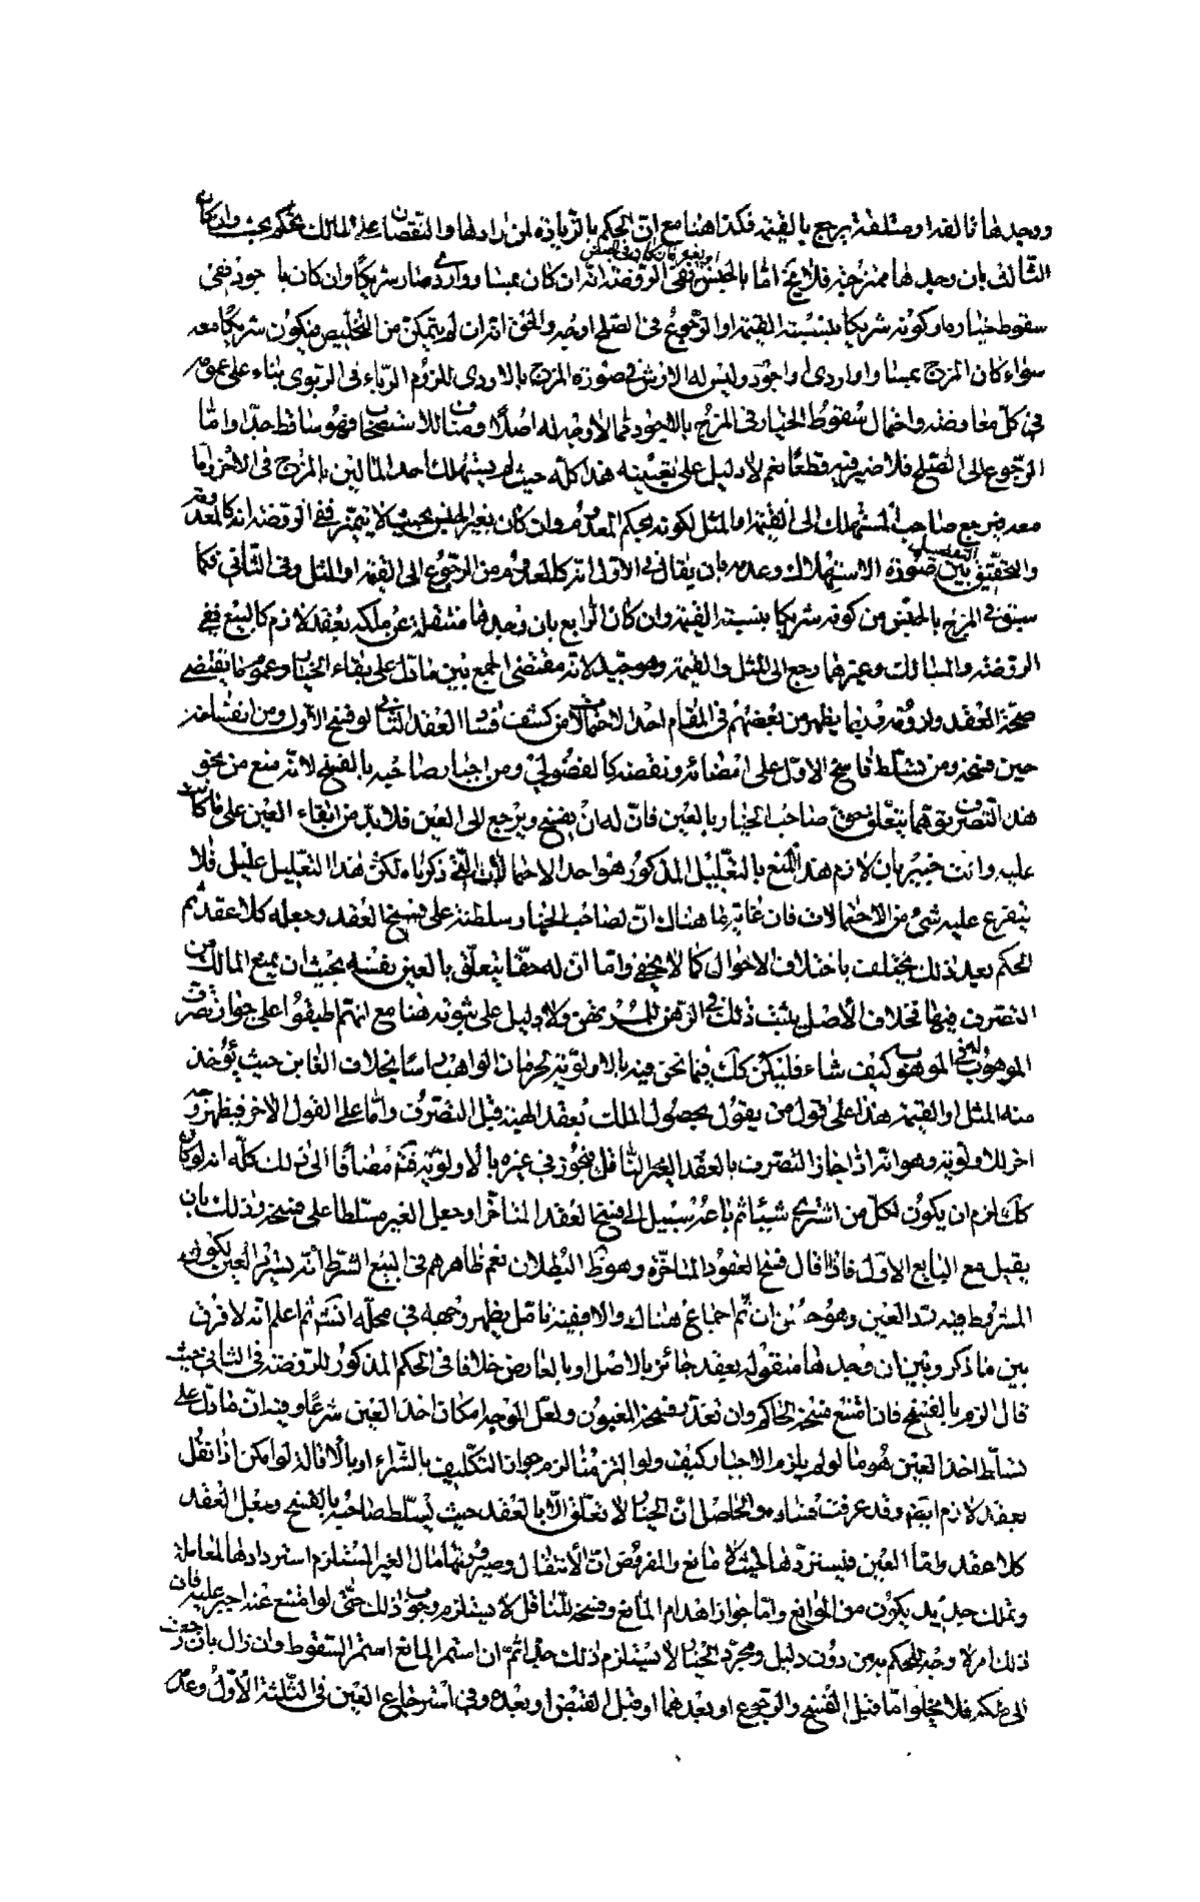 ووجدها تالفة او متلفة يرجع بالقيمة فكذا هنا مع ان الحكم بالزيادة لمن زادها والنقصان على المالك تحكم بحت وان كان
الثالث بان وجدها ممتزجة فلا يخ اما بالجنس او بغيره فان كان في الجنس ففي الروضة انه ان كان بمساو او اردى صار شريكا وان كان باجود ففي
سقوط خياره او كونه شريكا بنسبة القيمة او الرجوع الى الصلح اوجه والحق انه ان لم يتمكن من التخليص فيكون شريكا معه
سواء كان المزج بمساو او اردى او اجود وليس له الارش في صورة المزج بالاردى للزوم الرباء في الربوي بناء على عمومه
في كل معاوضة واحتمال سقوط الخيار في المزج بالاجود مما لا وجه له اصلا ومناف للاستصحاب فهو ساقط جدا واما
الرجوع الى الصلح فلا ضير فيه قطعا نعم لا دليل على تعيينه هذا كله حيث لم يستهلك احد المالين بالمزج في الاخر واما
معه يرجع صاحب المستهلك الى القيمة او المثل لكونه بحكم المعدوم وان كان بغير الجنس بحيث لا يتميز ففي الروضة انه كالمعدوم
والتحقيق التفصيل بين صورة الاستهلاك وعدمه بان يقال في الاول انه كالمعدوم من الرجوع الى القيمة او المثل وفي الثاني كما
سبق في المزج بالجنس من كونه شريكا بنسبة القيمة وان كان الرابع بان وجدها منتقلة عن ملكه بعقد لازم كالبيع ففي
الروضة والمسالك وغيرهما رجع الى المثل والقيمة وهو جيد لانه مقتضى الجمع بين ما دل على بقاء الخيار وعموم ما يقتضي
صحة العقد ولزومه فما يظهر من بعضهم في المقام احد الاحتمالات من كشف فساد العقد الثاني لو فسخ الاول ومن انفساخه
حين فسخه ومن تسلط فاسخ الاول على امضائه ونقضه كالفضولي ومن اجبار صاحبه بالفسخ لانه منع من نحو
هذا التصرف توهما بتعلق حق صاحب الخيار بالعين فان له ان يفسخ ويرجع الى العين فلا بد من ابقاء العين على ما كانت
عليه وانت خبير بان لازم هذا المنع بالتعليل المذكور هو احد الاحتمالات التي ذكرناه لكن هذا التعليل عليل فلا
يتفرع عليه شئ من الاحتمالات فان غاية ما هناك ان لصاحب الخيار سلطنة على فسخ العقد وجعله كلا عقد ثم
الحكم بعد ذلك يختلف باختلاف الاحوال كما لا يخفى واما ان له حقا يتعلق بالعين بنفسه بحيث ان يمنع المالك من
التصرف فيها فخلاف الاصل يثبت ذلك في الرهن للمرتهن ولا دليل على ثبوته هنا مع انهم اطبقوا على جواز تصرف
الموهوب له في الموهوب كيف شاء فليكن كك فيما نحن فيه بالاولوية لحرمان الواهب راسا بخلاف الغابن حيث يؤخذ
منه المثل او القيمة هذا على قول من يقول بحصول الملك بعقد الهبة قبل التصرف واما على القول الاخر فيظهر وجه
اخر للاولوية وهو انه اذا جاز التصرف بالعقد الغير الناقل فيجوز في غيره بالاولوية فتم مضافا الى ذلك كله انه لو كان
كك لزم ان يكون لكل من اشترى شيئا ثم باعه سبيل الى فسخ العقد المتاخر او جعل الغير مسلطا على فسخه وذلك بان
يقيل مع البايع الاول فاذا اقال فسخ العقود المتاخرة وهو ظ البطلان نعم ظاهرهم في البيع الشرط انه يشترط العين بكون
المشروط فيه رد العين وهو حسن ان تم اجماع هناك والا ففيه تامل يظهر وجهه في محله انشاء الله ثم اعلم انه لا فرق
بين ما ذكر وبين ان وجدها منقولة بعقد جائز بالاصل او بالعارض خلافا في الحكم المذكور للروضة في الثاني حيث
قال الزم بالفسخ فان امتنع فسخه الحاكم وان تعذر فسخه المغبون ولعل الوجه امكان اخذ العين شرعا وفيه ان ما دل على
تسلط اخذ العين هو ما لو لم يلزم الاجبار كيف ولو التزمنا لزم جواز التكليف بالشراء او بالاقالة لو امكن اذا نقل
بعقد لازم ايضا وقد عرفت فساده والحاصل ان الخيار لا تعلق الا بالعقد حيث يسلط صاحبه بالفسخ وجعل العقد
كلا عقد واما العين فيستردها حيث لا مانع والمفروض ان الانتقال وصيرورتها مال الغير المستلزم استردادها لمعاملة
وتملك جديد يكون من الموانع واما جواز اهدام المانع وفسخه للناقل لا يستلزم وجوب ذلك حتى لو امتنع عنه اجبر عليه فان
ذلك امر لا وجه للحكم به من دون دليل ومجرد الخيار لا يستلزم ذلك جدا ثم ان استمر المانع استمر السقوط وان زال بان رجعت
الى ملكه فلا يخلو اما قبل الفسخ والرجوع او بعدهما او قبل القبض او بعده وفي استرجاع العين في الثلثة الاول وعدمه